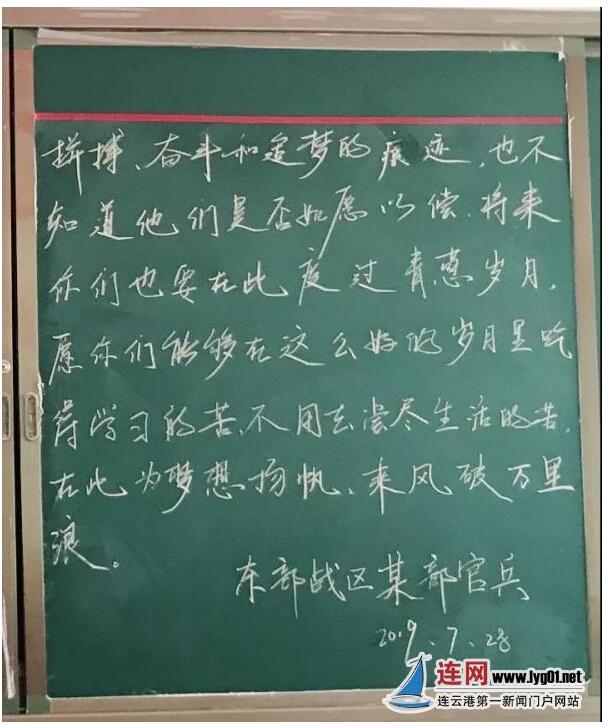 拼搏、奋斗和追梦的痕迹,也不
知道他们是否如愿以偿.将来
你们也要在此度过青葱岁月,
愿你们能够在这么好的岁月里吃
得学习的苦,不用去尝尽生活的苦,
在此为梦想扬帆、乘风破万里
浪。
东部战区某部官兵
2019.7.28
连网 www.lyg01.net
连云港第一新闻门户网站